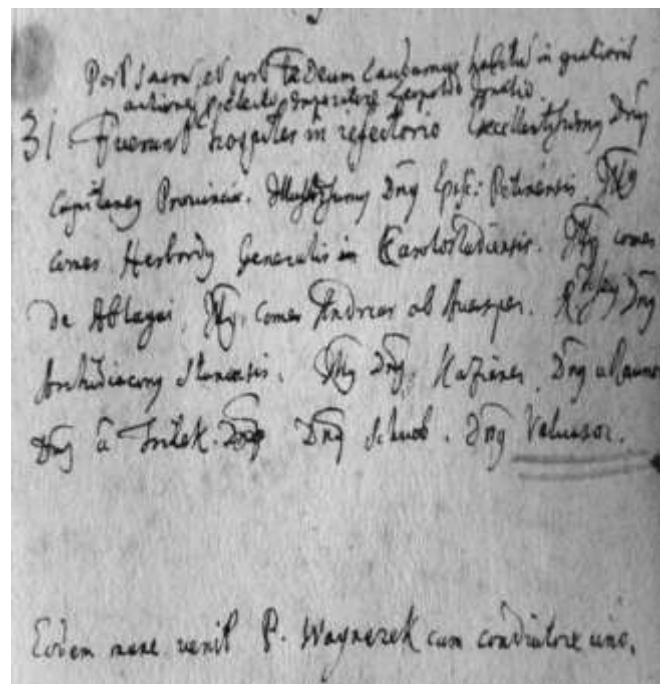 Post sacrum, et post Te Deum Laudamus habitum in gratiarum
actione electo Imperatore Leopoldo Ignatio.
31 Fuerunt hospites in refectorio Excellentissimus Dnus
Capitaneus Provinciae. Illustrissimus Dnus Episc: Petinensis. Illus
comes Herbardus Generalis in Carolostadiensis. Illus comes
de Blagai, Illus. comes Andreas ab Auersper. Rdissimus Dnus
Archidiaconus. Illus Dnus Kazianer, Dnus a Raunac
Dnus à Triλek. Dnus Schwab. Dnus Valuasor.
Eodem mane venit P. Waynerek cum condiutore uno.